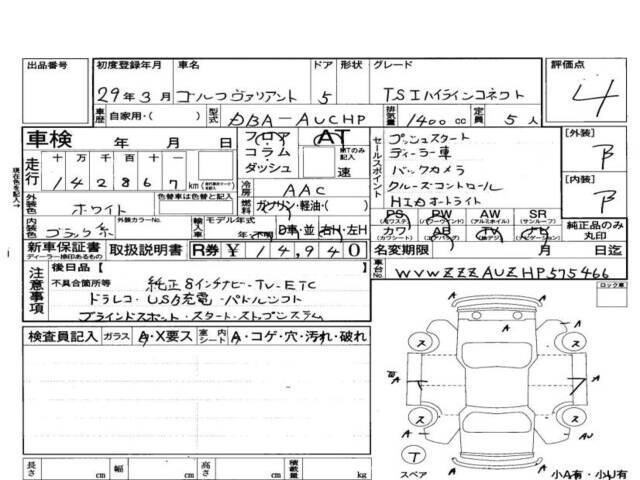 出品番号 初度登録年月 車名 ドア 形状 グレード 評価点
29年3月 ゴルフヴァリアント 5 TSIハイラインコネクト 4
車歴 自家用・( ) 型式 DBA-AUCHP 排気量 1400cc 定員 5人
車検 年 月 日 フロア AT セールスポイント プッシュスタート [外装]
走行 十万千百十 コラム・ダッシュ MTのみ記入 速 ディーラー車 B
142867km バックカメラ
冷房 AAC クルーズコントロール [内装]
外装色 ホワイト 色替車は色替と記入 燃料 ガソリン・軽油・( ) HIDオートライト B
内装色 ブラック系 外装カラーNo. 輸入車 モデル年式 年・不明 D車・並 右H・左H
PS PW AW SR 純正品のみ丸印
(パワステ) (パワーウインド) (アルミホイル) (サンルーフ)
カワ AB TV ナビ
(カワシート) (エアバッグ)
新車保証書 取扱説明書 R券 ¥14,940 名変期限 月 日迄
ディーラー捺印あるもの
車台No. WVWZZZAUZHP575466
注意事項 後日品 [ ロック車
不具合箇所等 純正8インチナビ-TV-ETC
ドラレコ・USB充電・パドルシフト
ブラインドスポット・スタートストップシステム
検査員記入 ガラス A・X要ス 室内シート A・コゲ・穴・汚れ・破れ
A A
ス ス
A A A A
ス ス
A AU
T
スペア A 小A有・小U有
長さ cm 幅 cm 高さ cm 積載量 kg
現在色を記入→